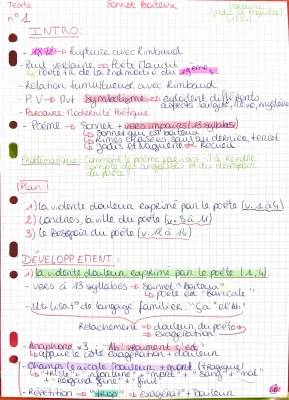 Texte Sonnet Boiteux Verlaine
n°1 Jadis et Naguère
(1884)
INTRO:
Rupture avec Rimbaud
- Paul Verlaine → Poète Maudit
Poète fin de la 2nd moitié du 19ème
- Relation tumultueuse avec Rimbaud
- P.V → Mvt Symbolisme → exploitent différents aspects langage, rêve, mystère
- Parcours: Modernité Poétique
- Poème → Sonnet + vers impairs / 13 syllabes
→ Sonnet qui est boiteux
→ rimes embrassées sauf au dernier tercet
→ Jadis et Naguère → Recueil
Problématique: Comment le poème parvient-il à rendre compte des angoisses et du désespoir du poète?
Plan:
1) la violente douleur exprimé par le poète (v. 1 à 4)
2) Londres, la ville du poète (v. 5 à 11)
3) le désespoir du poète (v. 12 à 14)
DÉVELOPPEMENT:
1) la violente douleur exprimé par le poète (1, 4)
- vers à 13 syllabes → Sonnet "Boiteux"
→ poète est "bancale"
- Utilisat° de langage familier: "Ça" et "Ah"
Relachement → douleur du poète
→ exagération
- Anaphore x3 "Ah! vraiment c'est"
→ appuie le côté exagération + douleur
- Champs lexicale douleur + mort (tragique)
→ "triste" + "infortuné" + "mort" + "sang" +
+ "regard fane" + "finit"
- Répétition → "trop" → exagérat° + douleur